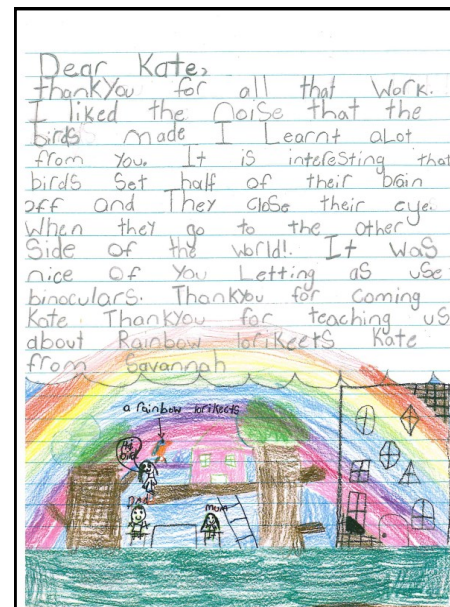 Dear Kate,
thankYou for all that Work.
I liked the noise that the
birds made I Learnt aLot
from you. It is interesting that
birds Set half of their brain
off and They close their eye.
When they go to the other
Side of the world!. It was
nice of You Letting as use
binoculars. Thankyou for coming
Kate Thankyou for teaching us
about Rainbow lorikeets Kate
from Savannah
a rainbow lorikeets
Dad
mum